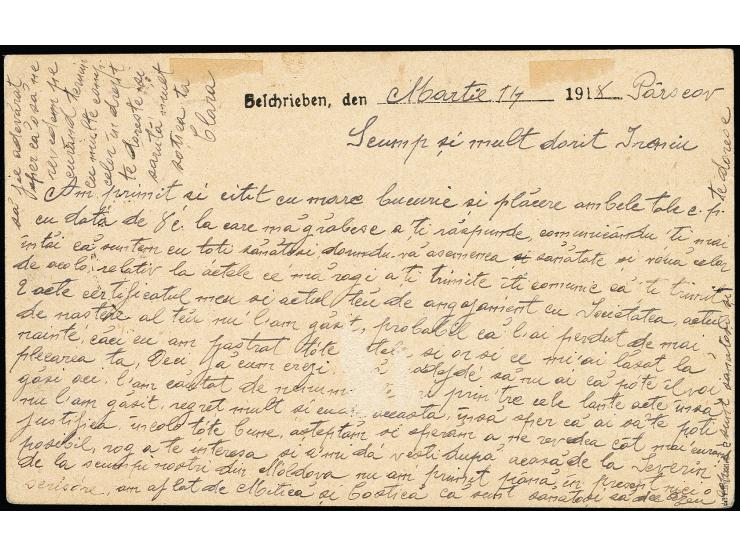 Geschrieben, den Martie 14 1918 Pârscov
Scump și mult dorit
Am primit si citit cu mare bucurie si plăcere ambele tale c. p.
cu data de 8 c. la care mă grăbesc a ți răspunde, comunicându ți mai
întăi că suntem cu toti sănătosi, dorindu vă asemenea sănătate si vouă celor
de acolo, relativ la actele ce mă rogi a ti trimite iti comunic că ti trimit
2 acte certificatul meu si actul tĕu de angajament cu Societatea, actul
de nastĕr al tĕu nu l'am găsit, probabil că l'ai perdut de mai
nainte, căci eu am păstrat tóte si or si ce mi ai lăsat la
plecarea ta, Deci să nu ai că póte il voi
găsi aci. l'am căutat de prin tre cele lante acte insă
nu l'am găsit, regret mult si eu aceasta, insă sper că ai să te poti
justifica, incolo tóte bune, asteptăm si sperăm a ne revedea căt mai curĕn
posibil, rog a te interesa si a'mi da vesti după acasă de la Severin
de la scumpii nostri din Moldova nu am primit pănă in present nici o
scrisóre, am aflat de Mitică si Costică că sunt sănătosi
să fie adevărat
sper ca să ne
revedem pe
curănd termin
cu multe
celor in drept
te doreste si
sărută mult
sotiea ta
Clara
te doresc